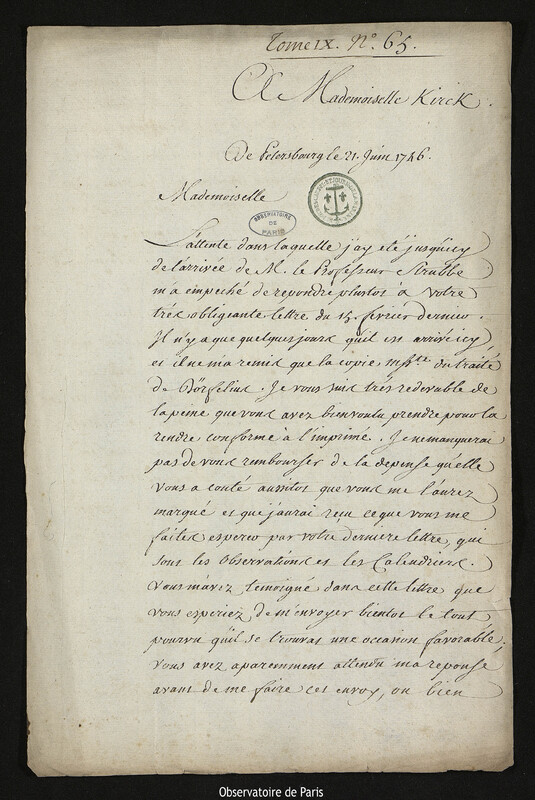 Tome IX. N.º 65.
A Mademoiselle Kirck.
De Petersbourg le 21. Juin 1746.
Mademoiselle
OBSERVATOIRE
DE
PARIS
L'attente dans laquelle j'ay été jusqu'icy
de l'arrivée de M. le Professeur Strubbe
m'a empeché de repondre plustos à votre
trés obligeante lettre du 15. fevriér dernier.
Il n'y a que quelques jours qu'il est arrivé icy,
et il ne m'a remis que la copie mss.te du traité
de Dörfelius. Je vous suis trés redevable de
la peine que vous avez bien voulu prendre pour la
rendre conforme à l'imprimé. Je ne manquerai
pas de vous rembourser de la depense qu'elle
vous a couté aussitos que vous me l'aurez
marqué et que j'aurai reçu ce que vous me
faites esperer par votre derniere lettre, qui
sont les Observations et les Calendriers.
Vous m'avez temoigné dans cette lettre que
vous esperiez de m'envoyer bientos le tout
pourvu qu'il se trouvas une occasion favorable;
vous avez aparemment attendu ma reponse
avant de me faire cet envoy, ou bien
Observatoire de Paris